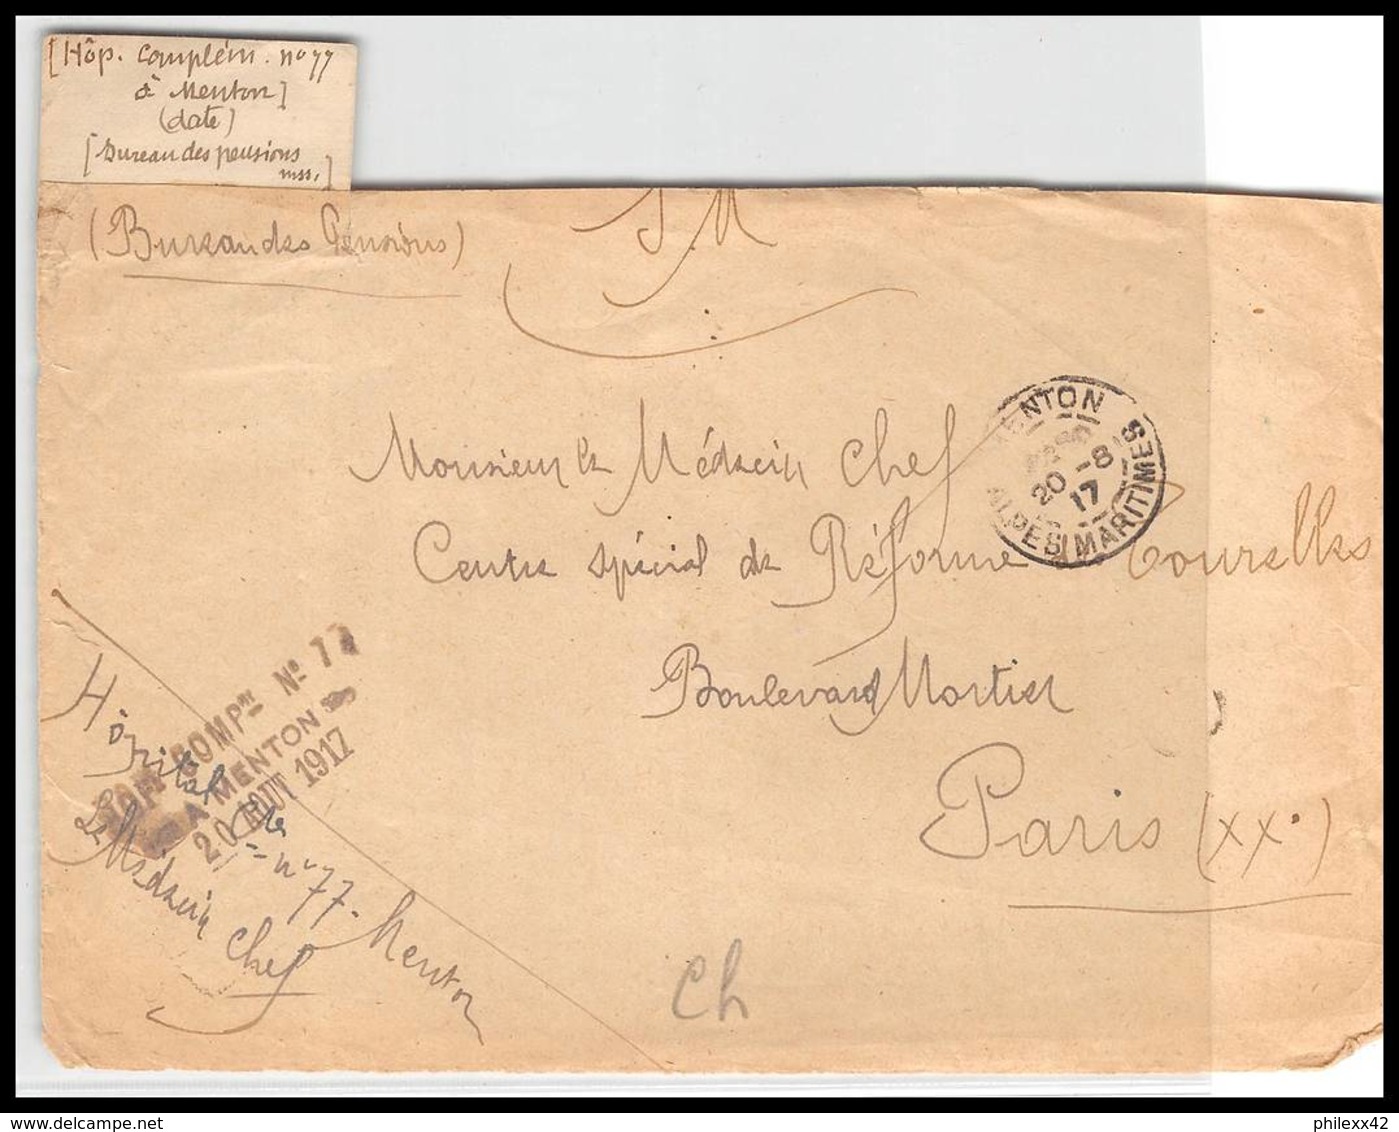 [Hôp. Complém. no 77
à Menton]
(date)
[Bureau des pensions
mss.]
(Bureau des Pensions)
S M
MENTON
20 -8
17
ALPES MARITIMES
Monsieur le Médecin Chef
Centre spécial de Réforme Tourelles
Boulevard Mortier
Paris (XXe)
HOPal COMPre No 77
A MENTON
20 AOUT 1917
Hôpital Cre no 77. Menton
Le Médecin Chef
Ch
philexx42